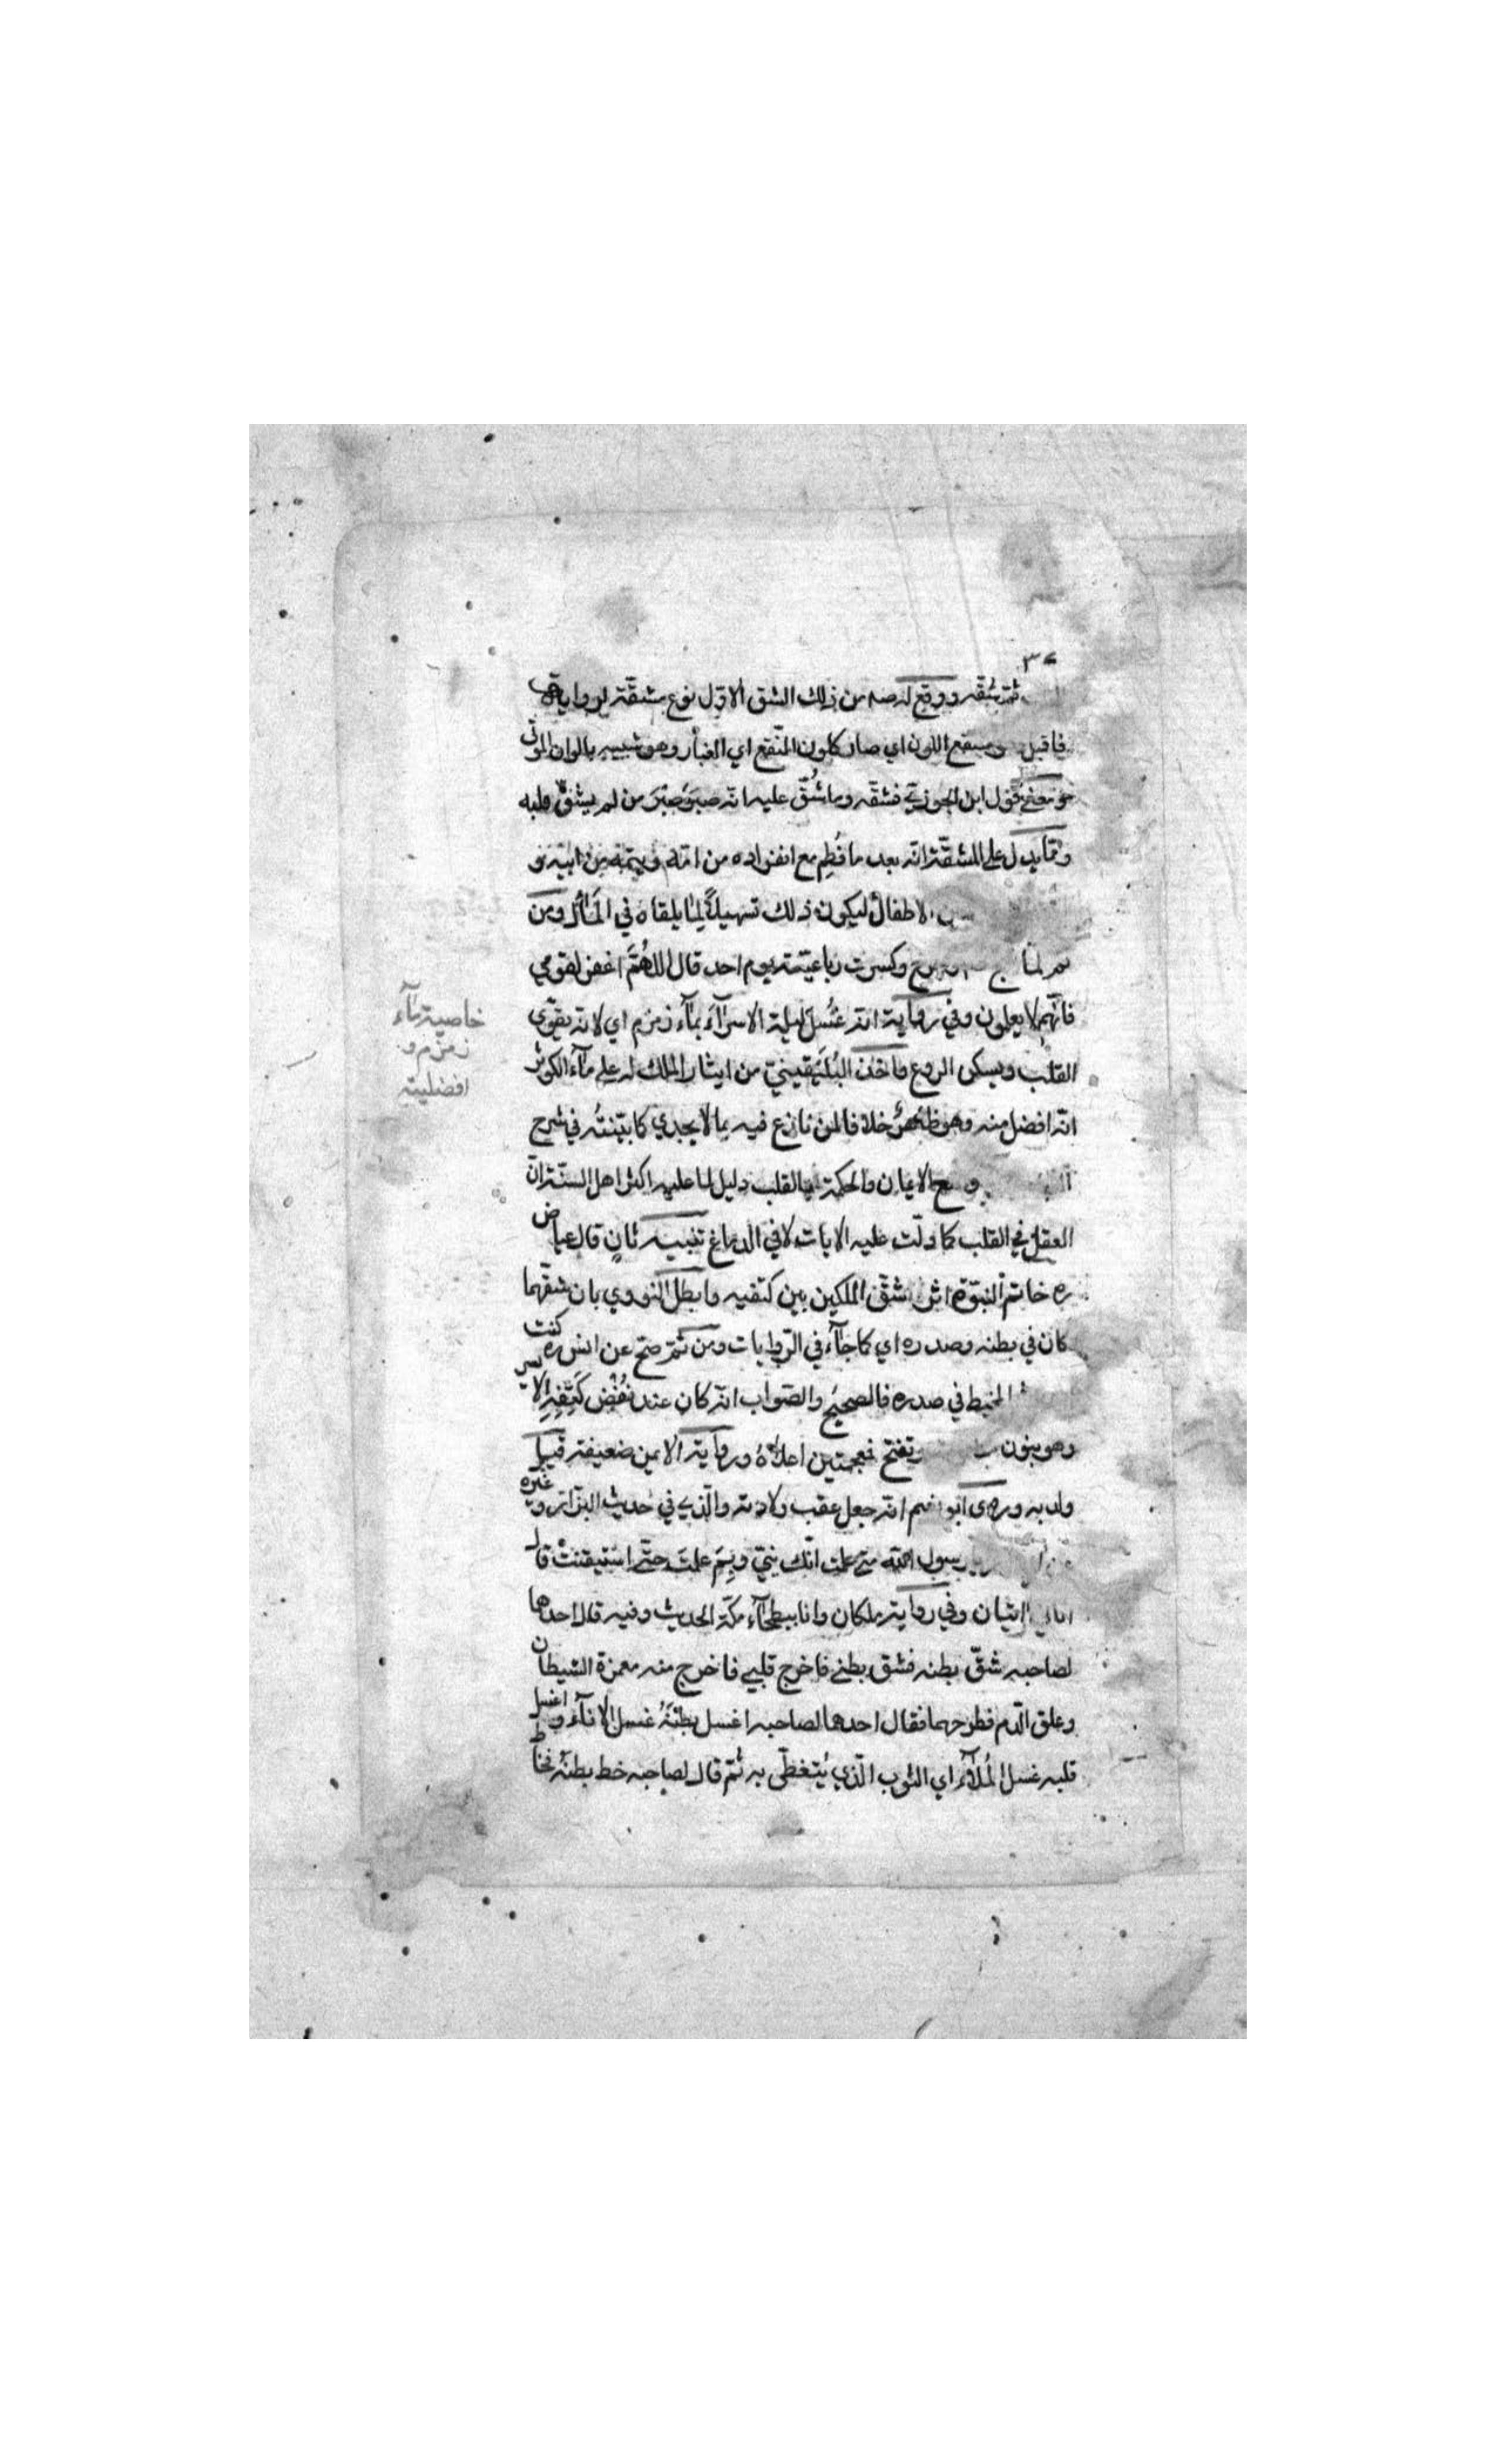 ثم شقه ووقع له صم من ذلك الشق الاول نوع مشقة لرواية
فاقبل منتقع اللون اي صار كلون النقع اي الغبار وهو شبيه بالوان الموتى
معنى قول ابن الجوزي فشقه وما شُقّ عليه انه صبر صبر من لم يشق قلبه
ومما يدل على المشقة انه بعد ما فُطِم مع انفراده من امه ويتمه من ابيه و
الاطفال ليكون ذلك تسهيلاً لما يلقاه في المآل ومن
ثم لما وكسرت رباعيته يوم احد قال اللهُمَّ اغفر لقومي
فانهم لا يعلمون وفي رواية انه غُسل ليلة الاسرآء بمآء زمزم اي لانه يقوّي
القلب ويسكن الروع فاخذ البُلْقينيّ من ايثار الملك له على مآء الكوثر
انه افضل منه وهو ظاهر خلافا لمن نازع فيه بما لا يجدي كما بيّنتُه في شرح
الايمان والحكمة بالقلب دليل لما عليه اكثر اهل السنة ان
العقل في القلب كما دلّت عليه الايات لا في الدماغ تنبيه ثانٍ قال عياض
ره خاتم النبوة اثر شقّ الملكين بين كتفيه وابطل النووي بان شقهما
كان في بطنه وصدره اي كما جآء في الروايات ومن ثمّ صحّ عن انس ره كنت
المخيط في صدره فالصحيح والصواب انه كان عند نُغْض كَتِفِه الايسر
وهو بنون وتفتح فمعجمتين اعلاهُ ورواية الايمن ضعيفة قيل
ولد به وروى ابو نعيم انه جعل عقب ولادته والّذي في حديث البزار وغيره
رسول الله متى علمت انّك نبيّ وبِمَ علمتَ حتّى استيقنتْ قال
اتاني اتيان وفي رواية ملكان وانا ببطحآء مكّة الحديث وفيه قال احدهما
لصاحبه شقّ بطنه فشق بطني فاخرج قلبي فاخرج منه مغمزة الشيطان
وعلق الدم فطرحهما فقال احدهما لصاحبه اغسل بطنَهُ غسل الانآء واغسل
قلبه غسل المُلآء اي الثوب الّذي يُتغطّى به ثمّ قال لصاحبه خط بطنه فخاط
خاصية مآء
زمزم و
افضليته